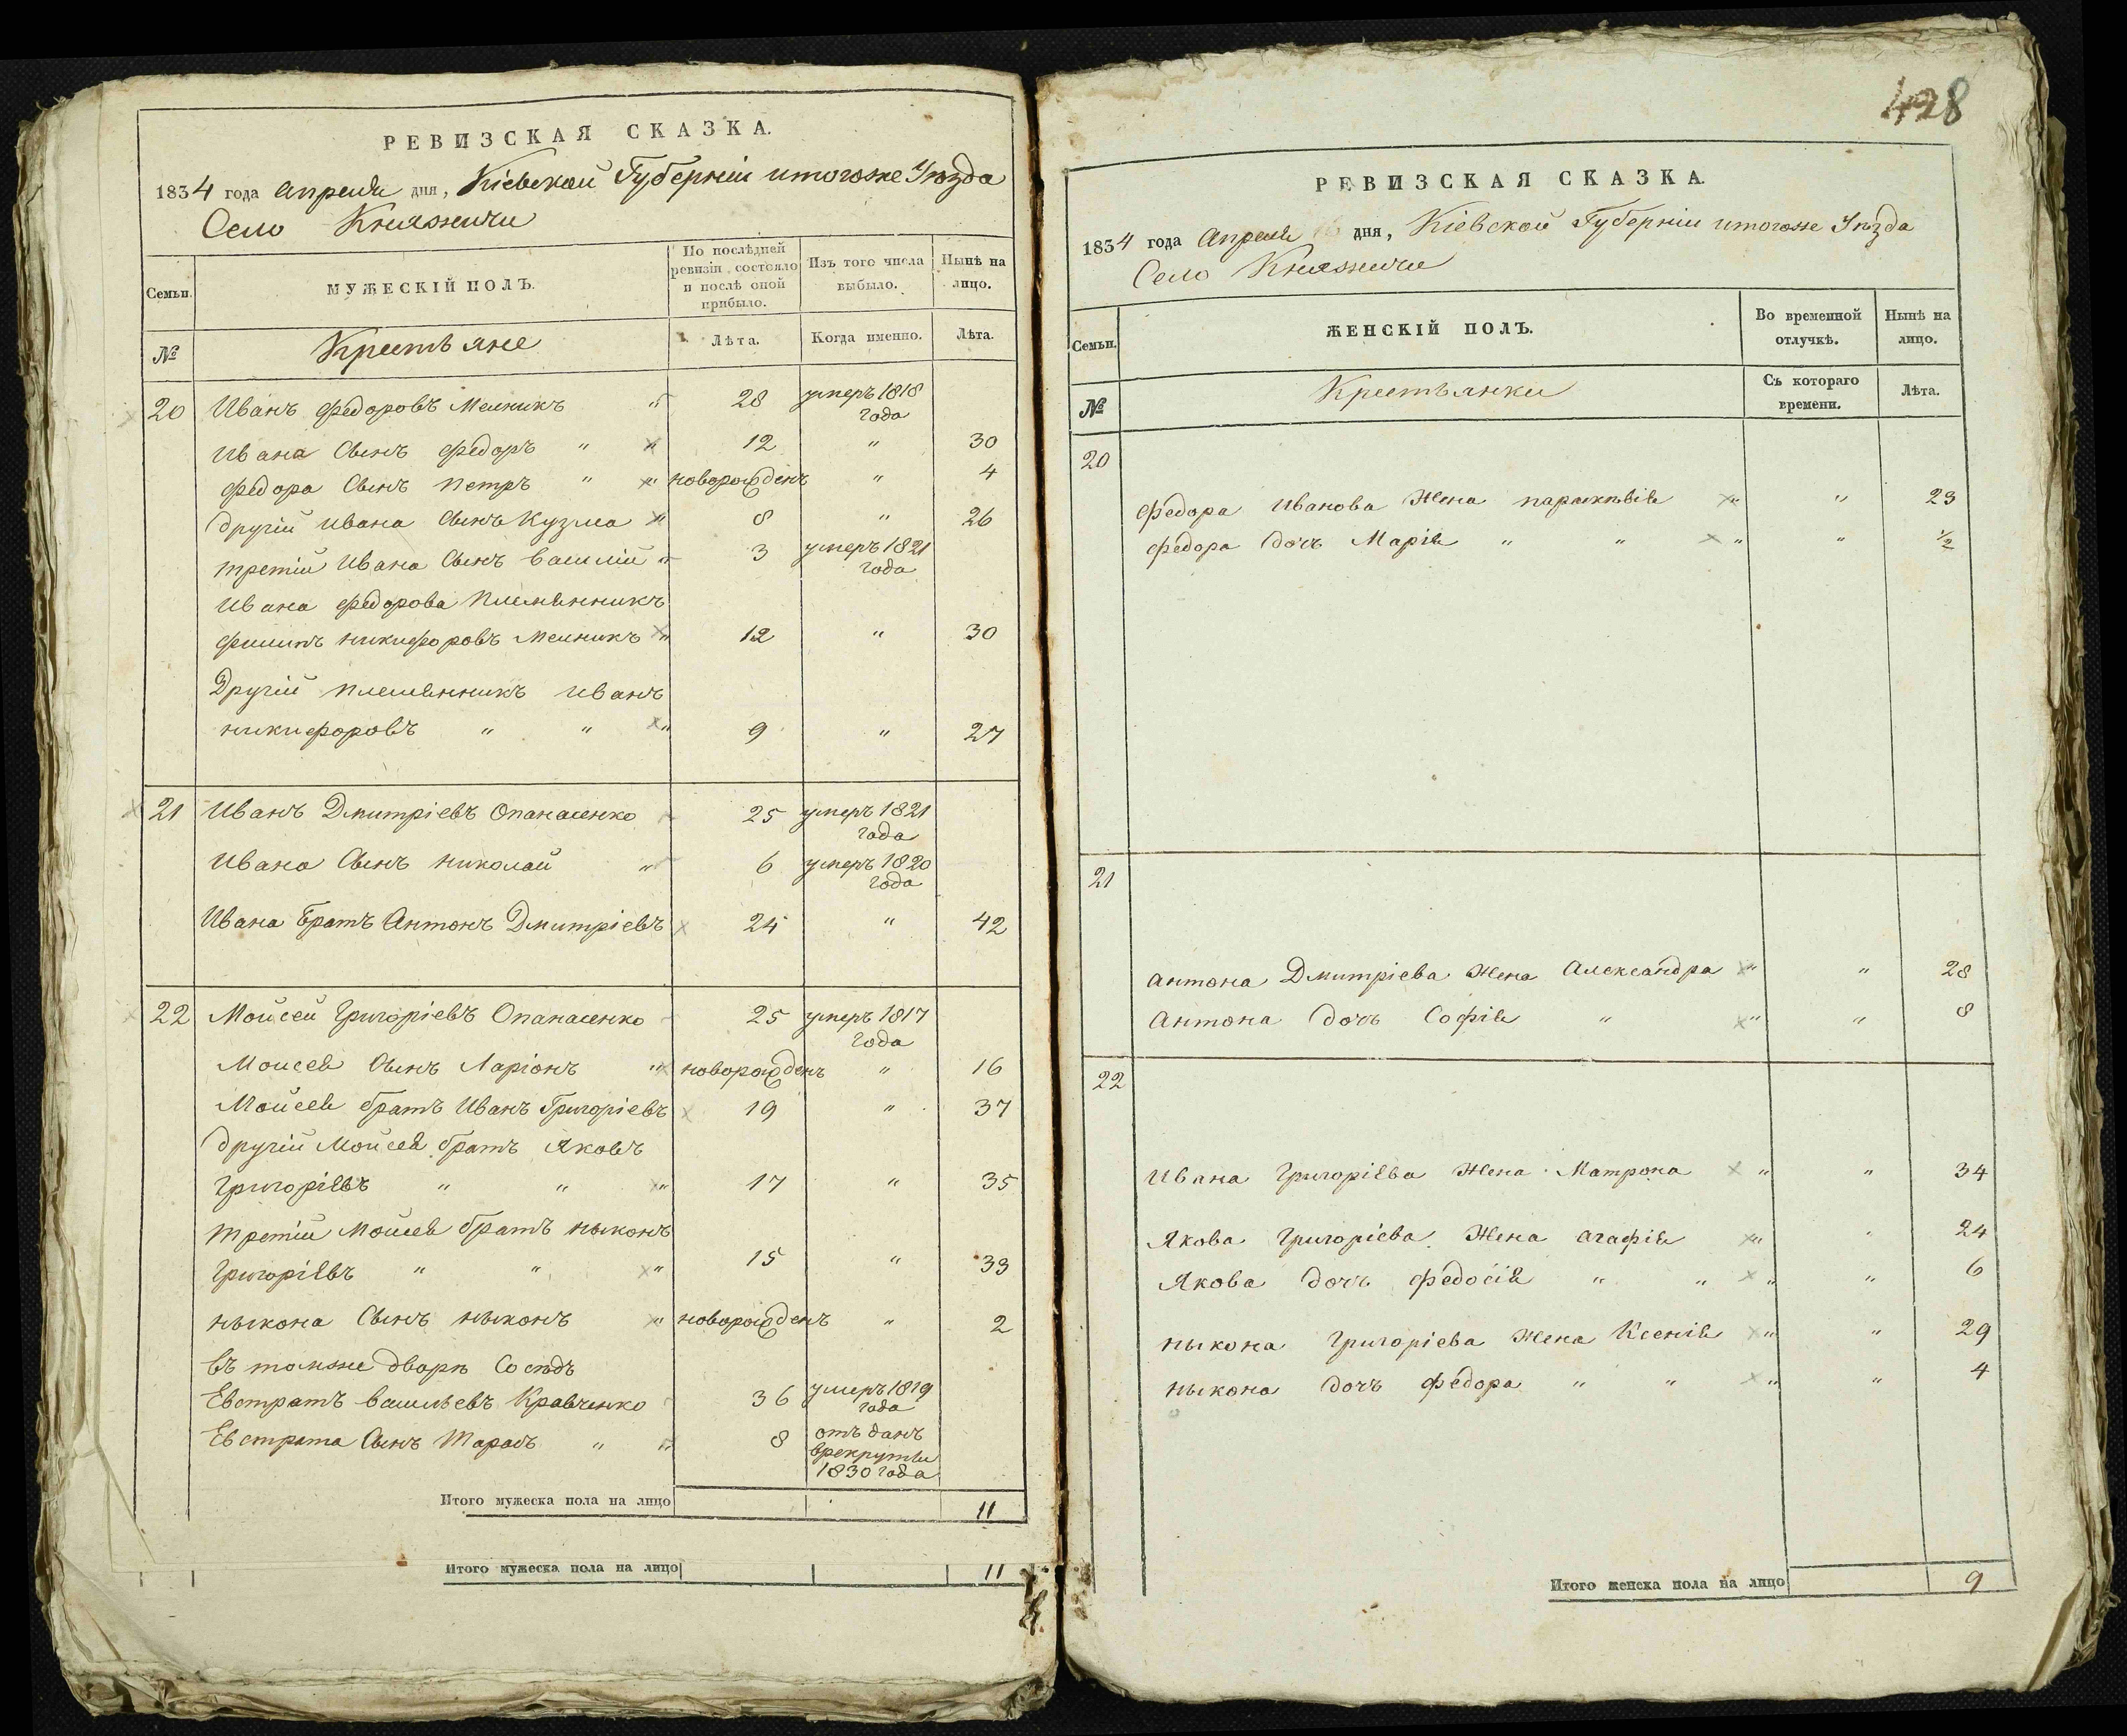 РЕВИЗСКАЯ СКАЗКА.
1834 года Апреля дня, Кіевской Губерніи итогоже Уѣзда
Село Княжичи
Семьи. МУЖЕСКІЙ ПОЛЪ. По послѣдней ревизіи состояло и послѣ оной прибыло. Изъ того числа выбыло. Нынѣ на лицо.
№ Крестьяне Лѣта. Когда именно. Лѣта.
20 Иванъ Федоровъ Мелникъ " 28 умеръ 1818 года
Ивана Сынъ Федоръ " " 12 " 30
Федора Сынъ Петръ " " новорожденъ " 4
Другій Ивана Сынъ Кузма " 8 " 26
третій Ивана Сынъ Василій " 3 умеръ 1821 года
Ивана Федорова Племянникъ
Филипъ Никифоровъ Мелникъ " 12 " 30
Другій племянникъ Иванъ
Никифоровъ " " " 9 " 27
21 Иванъ Дмитріевъ Опанасенко 25 умеръ 1821 года
Ивана Сынъ Николай " 6 умеръ 1820 года
Ивана Братъ Антонъ Дмитріевъ 24 " 42
22 Мойсей Григоріевъ Опанасенко 25 умеръ 1817 года
Моисея Сынъ Ларіонъ " новорожденъ " 16
Мойсея братъ Иванъ Григоріевъ 19 " 37
другій Мойсея братъ Яковъ
Григоріевъ " " " 17 " 35
третій Мойсея братъ Ныконъ
Григоріевъ " " " 15 " 33
Ныкона Сынъ Ныконъ " новорожденъ " 2
въ томже дворѣ Сосѣдъ
Евстратъ Васильевъ Кравченко 36 умеръ 1819 года
Евстрата Сынъ Тарасъ " " 8 отъданъ
врекруты
1830 года
Итого мужеска пола на лицо 11
Итого мужеска пола на лицо 11
428
РЕВИЗСКАЯ СКАЗКА.
1834 года Апреля дня, Кіевской Губерніи итогоже Уѣзда
Село Княжичи
Семьи. ЖЕНСКІЙ ПОЛЪ. Во временной отлучкѣ. Нынѣ на лицо.
№ Крестьянки Съ котораго времени. Лѣта.
20
Федора Иванова Жена Параскѣвія " " 23
Федора дочъ Марія " " " " 1/2
21
Антона Дмитріева Жена Александра " " 28
Антона дочъ Софія " " " 8
22
Ивана Григоріева Жена Матрона " " 34
Якова Григоріева Жена Агафія " " 24
Якова дочъ Федосія " " " " 6
Ныкона Григоріева Жена Ксенія " " 29
Ныкона дочъ Федора " " " " 4
Итого женска пола на лицо 9